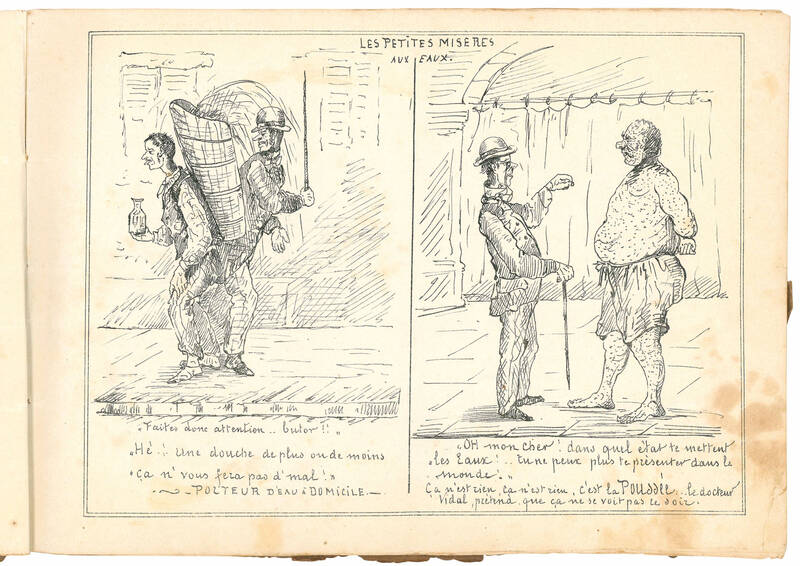 LES PETITES MISERES
AUX EAUX.
"Faites donc attention.. butor!!"
"Hé! Une douche de plus ou de moins
"Ça n'vous fera pas d'mal!"
PORTEUR D'EAU à DOMICILE.
"OH mon cher! dans quel état te mettent
"les Eaux!.. tu ne peux plus te présenter dans le
monde."
Ça n'est rien, ça n'est rien, c'est la POUSSÉE... le docteur
Vidal, prétend, que ça ne se voit pas le soir.